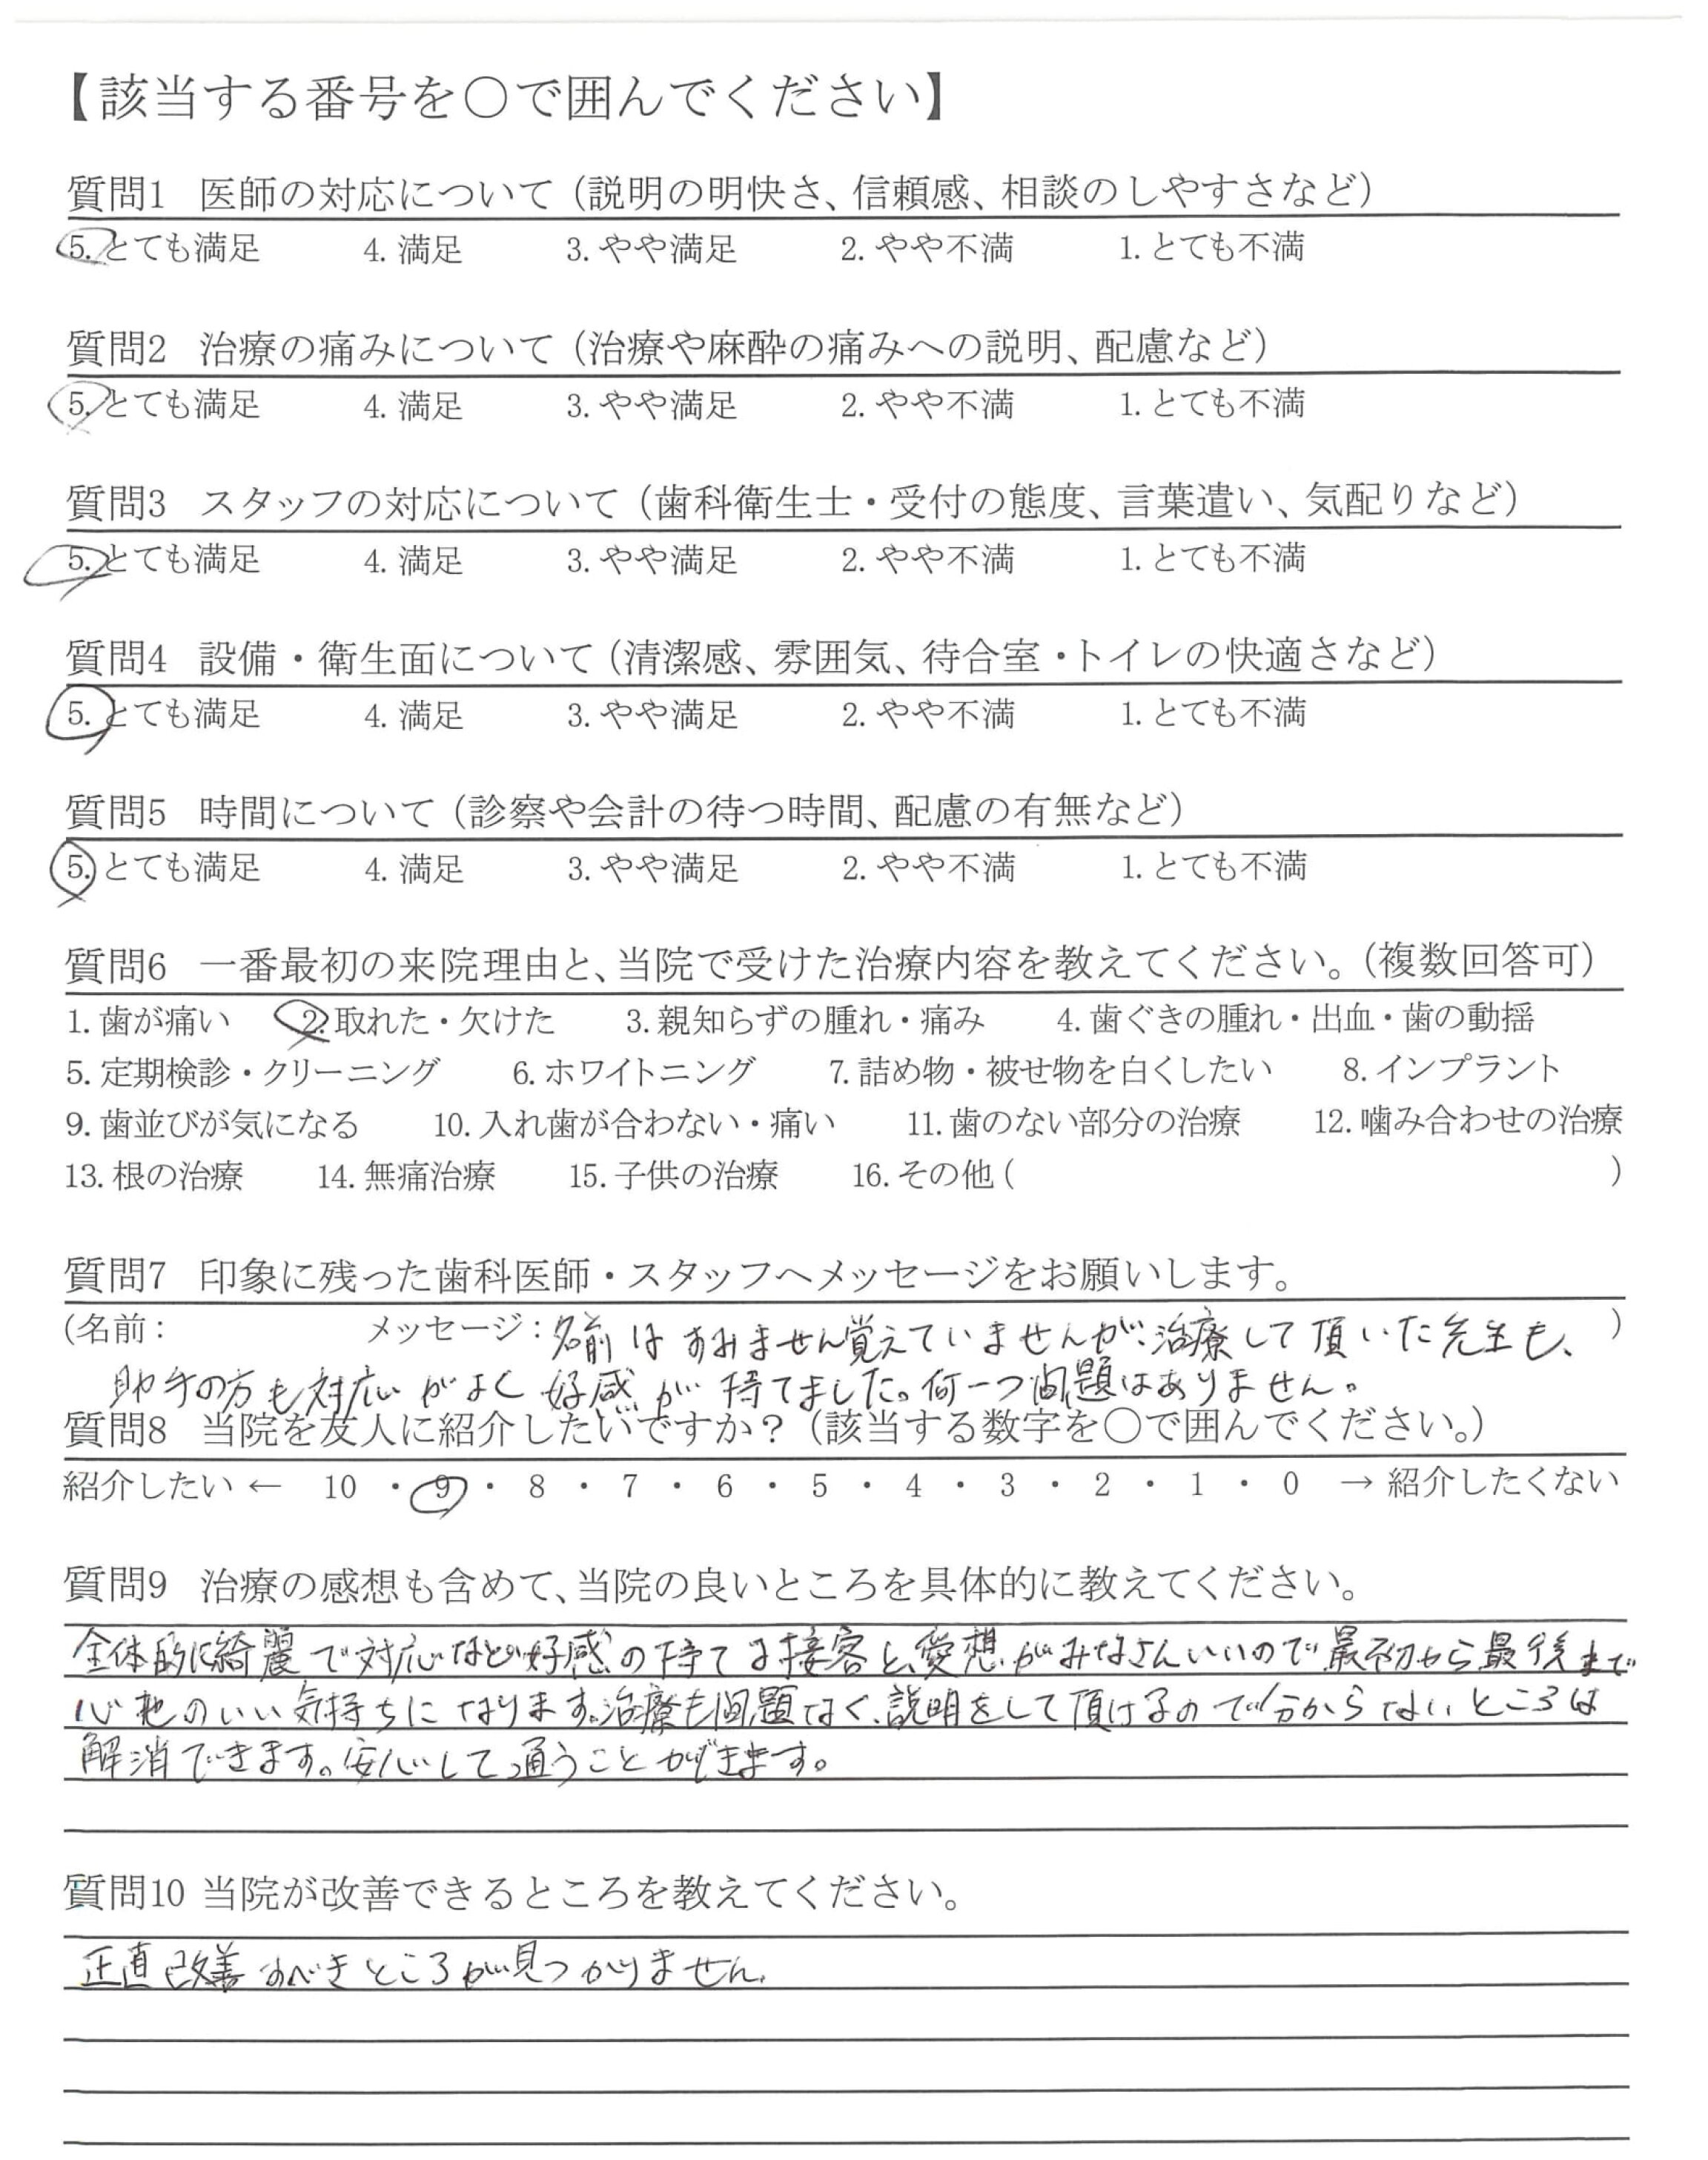 【該当する番号を○で囲んでください】
質問1 医師の対応について（説明の明快さ、信頼感、相談のしやすさなど）
5. とても満足 4. 満足 3. やや満足 2. やや不満 1. とても不満
質問2 治療の痛みについて（治療や麻酔の痛みへの説明、配慮など）
5. とても満足 4. 満足 3. やや満足 2. やや不満 1. とても不満
質問3 スタッフの対応について（歯科衛生士・受付の態度、言葉遣い、気配りなど）
5. とても満足 4. 満足 3. やや満足 2. やや不満 1. とても不満
質問4 設備・衛生面について（清潔感、雰囲気、待合室・トイレの快適さなど）
5. とても満足 4. 満足 3. やや満足 2. やや不満 1. とても不満
質問5 時間について（診察や会計の待つ時間、配慮の有無など）
5. とても満足 4. 満足 3. やや満足 2. やや不満 1. とても不満
質問6 一番最初の来院理由と、当院で受けた治療内容を教えてください。（複数回答可）
1. 歯が痛い 2. 取れた・欠けた 3. 親知らずの腫れ・痛み 4. 歯ぐきの腫れ・出血・歯の動揺
5. 定期検診・クリーニング 6. ホワイトニング 7. 詰め物・被せ物を白くしたい 8. インプラント
9. 歯並びが気になる 10. 入れ歯が合わない・痛い 11. 歯のない部分の治療 12. 噛み合わせの治療
13. 根の治療 14. 無痛治療 15. 子供の治療 16. その他（ ）
質問7 印象に残った歯科医師・スタッフへメッセージをお願いします。
（名前： メッセージ：名前はすみません覚えていませんが、治療して頂いた先生も、）
助手の方も対応がよく好感が持てました。何一つ問題はありません。
質問8 当院を友人に紹介したいですか？（該当する数字を○で囲んでください。）
紹介したい ← 10 ・ 9 ・ 8 ・ 7 ・ 6 ・ 5 ・ 4 ・ 3 ・ 2 ・ 1 ・ 0 → 紹介したくない
質問9 治療の感想も含めて、当院の良いところを具体的に教えてください。
全体的に綺麗で対応など好感の持てる接客と、愛想がみなさんいいので最初から最後まで
心地のいい気持ちになります。治療も問題なく、説明をして頂けるので分からないところは
解消できます。安心して通うことができます。
質問10 当院が改善できるところを教えてください。
正直改善すべきところが見つかりません。